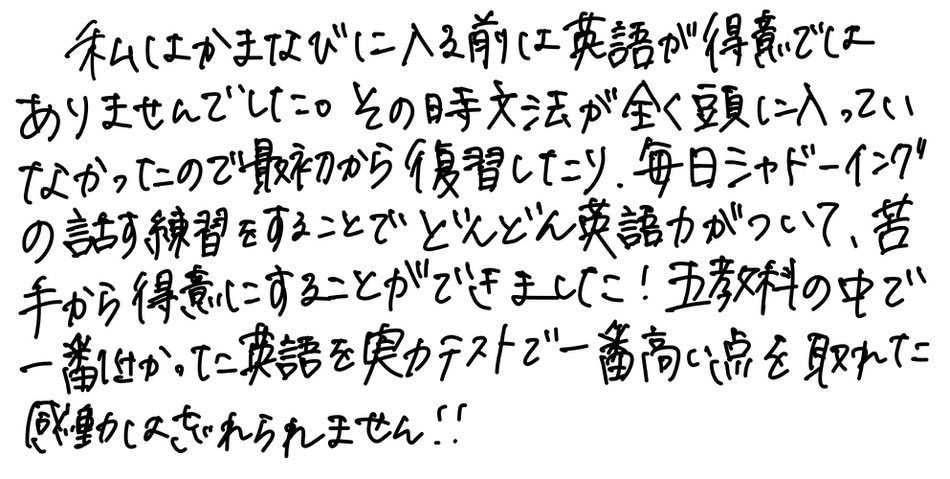 私はかまなびに入る前は英語が得意では
ありませんでした。その時文法が全く頭に入ってい
なかったので最初から復習したり、毎日シャドーイング
の話す練習をすることでどんどん英語力がついて、苦
手から得意にすることができました!五教科の中で
一番低かった英語を実力テストで一番高い点を取れた
感動はわすれられません!!